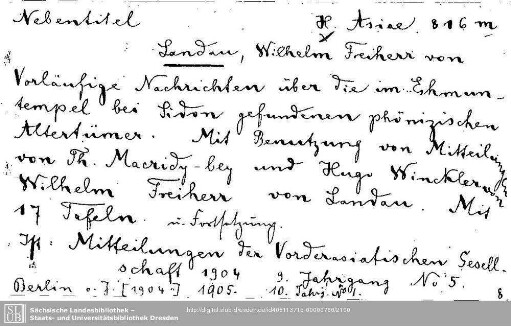 Nebentitel H. Asiae. 816 m
Landau, Wilhelm Freiherr von
Vorläufige Nachrichten über die im Eshmun-
tempel bei Sidon gefundenen phönizischen
Altertümer. Mit Benutzung von Mitteilungen
von Th. Macridy-bey und Hugo Winckler von
Wilhelm Freiherr von Landau. Mit
17 Tafeln. u. Fortsetzung.
Ist: Mitteilungen der Vorderasiatischen Gesell-
schaft 1904 9. Jahrgang No 5.
Berlin o. J. [1904] 1905. 10. Jahrg. No 1.
8
Sächsische Landesbibliothek –
Staats- und Universitätsbibliothek Dresden